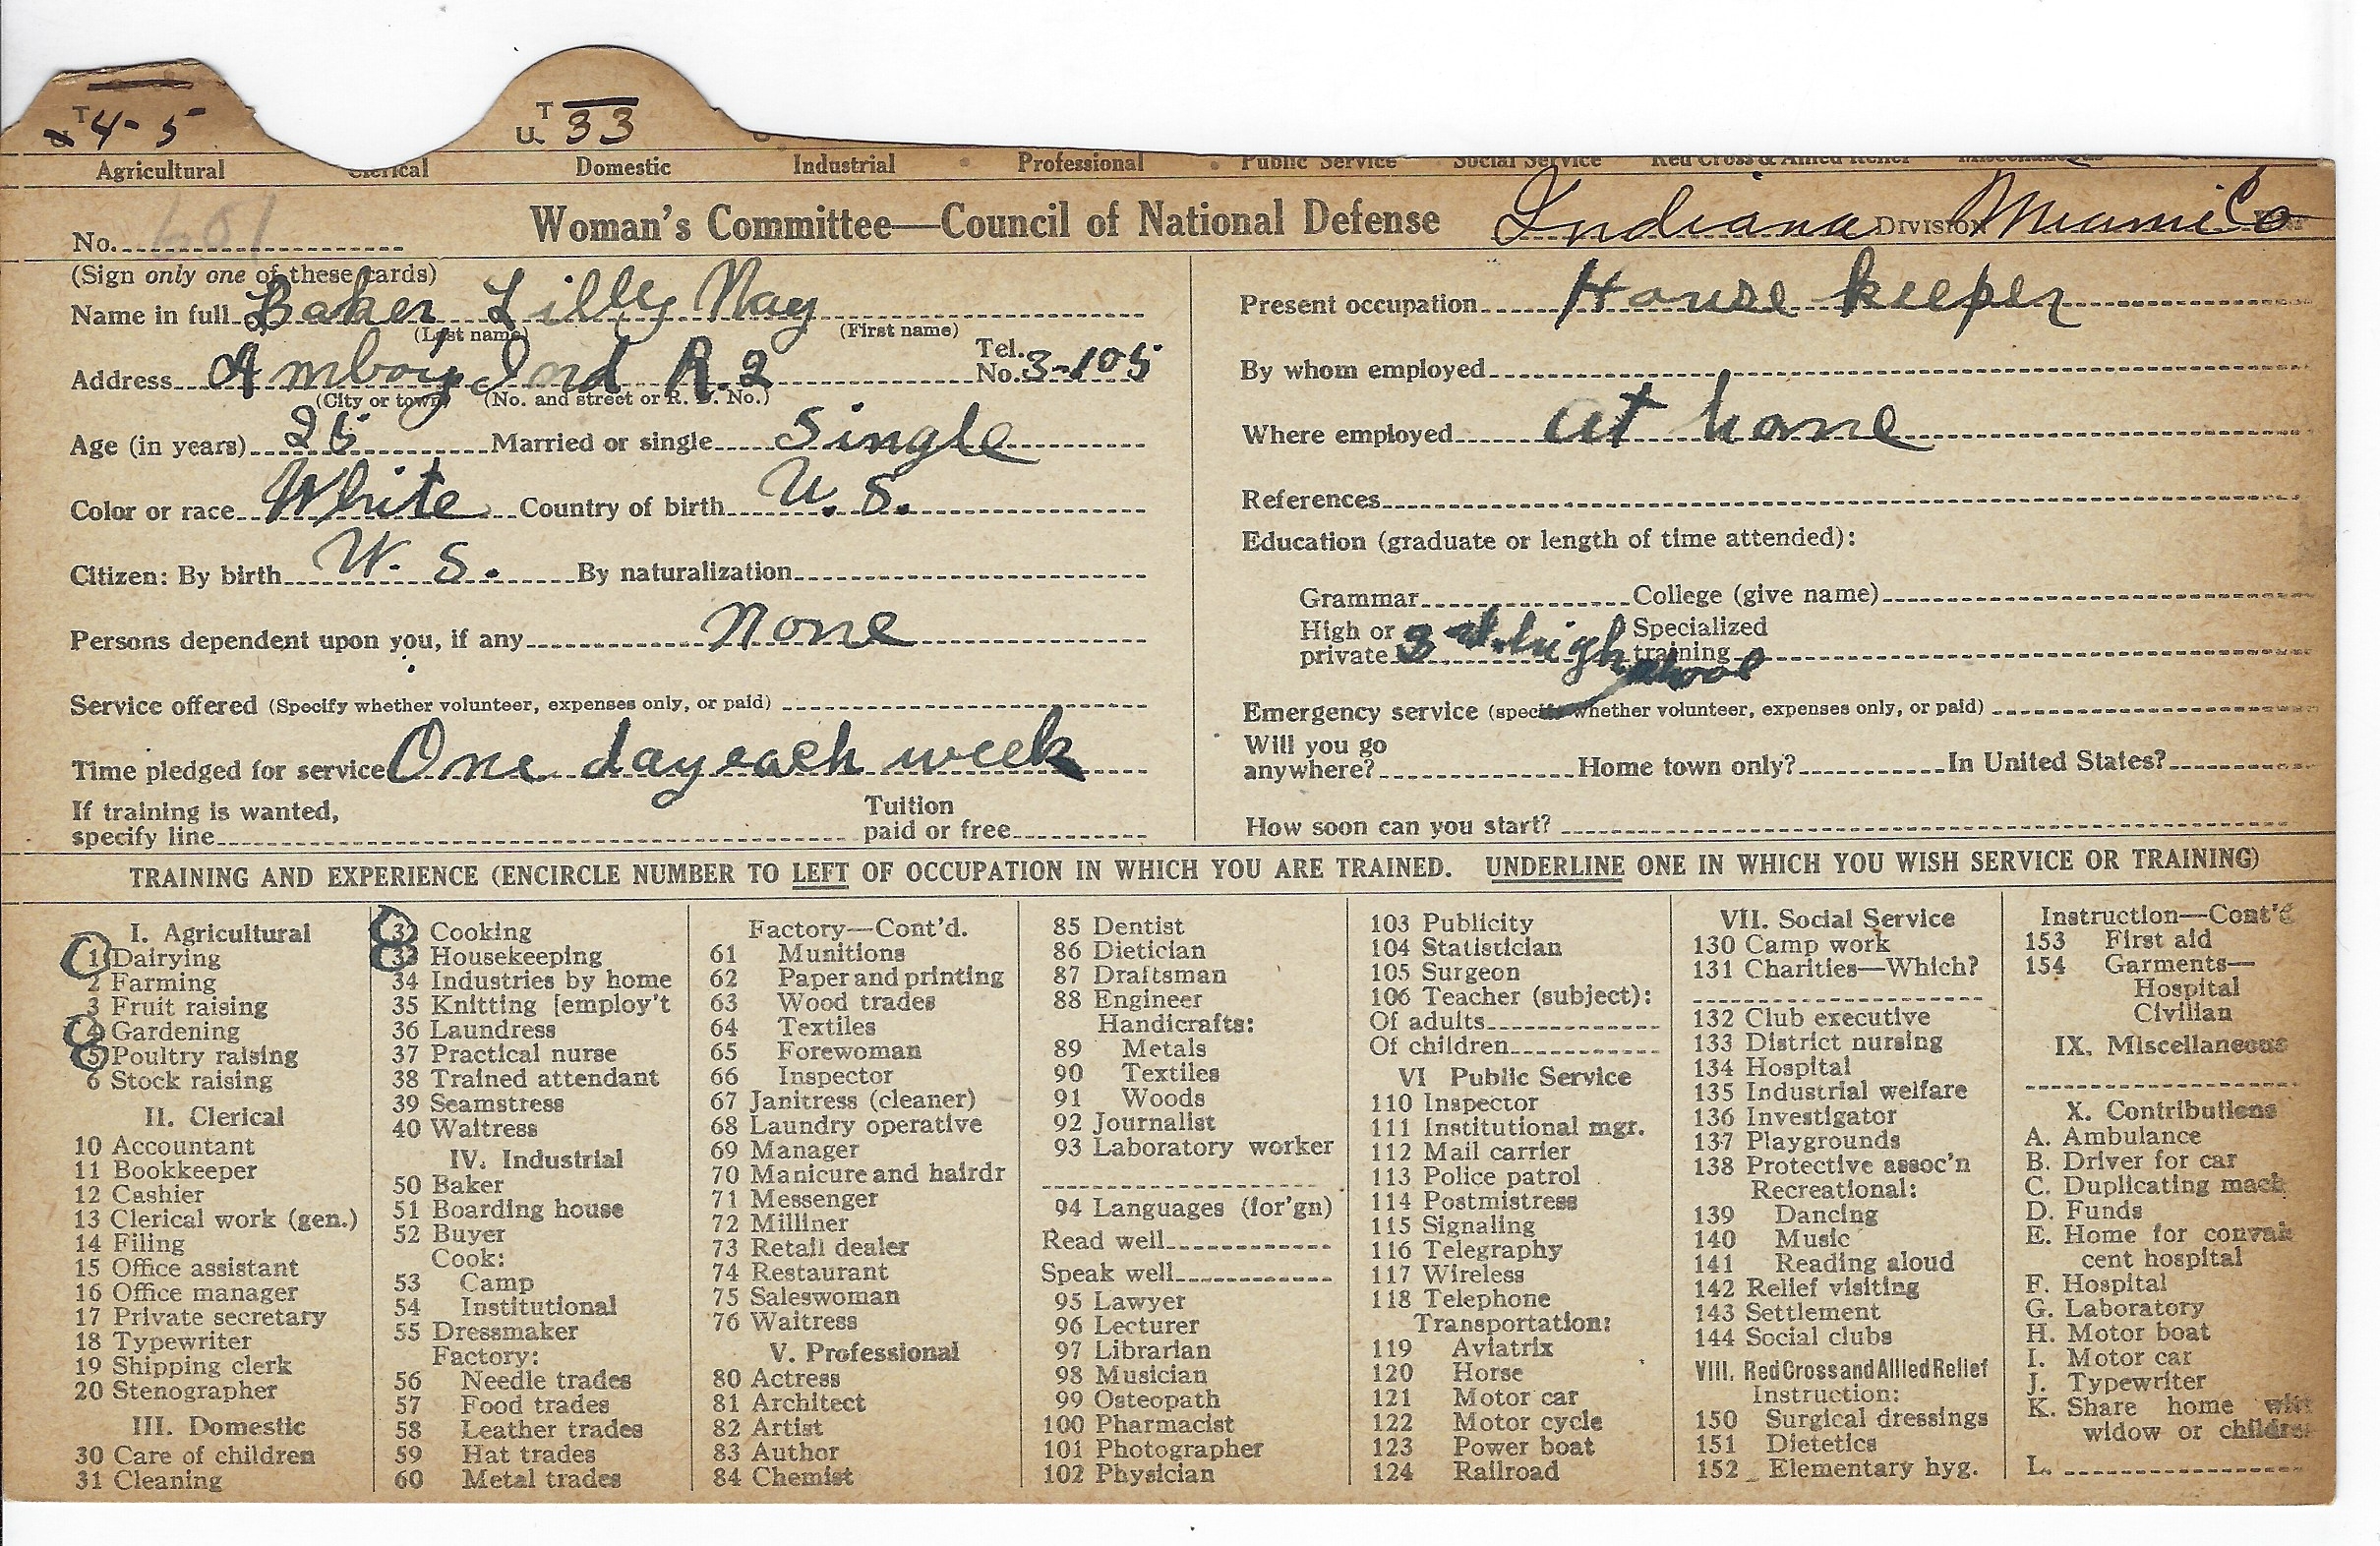 T 4-5
T
U. 33
Agricultural Clerical Domestic Industrial Professional Public Service Social Service Red Cross & Allied Relief Miscellaneous
No. 601
Woman's Committee—Council of National Defense Indiana Division Miami Co
(Sign only one of these cards)
Name in full Baker Lilly May
(Last name) (First name)
Address Amboy Ind R.2 Tel. No. 3-105
(City or town) (No. and street or R. F. No.)
Age (in years) 25 Married or single Single
Color or race White Country of birth U. S.
Citizen: By birth U. S. By naturalization
Persons dependent upon you, if any None
Service offered (Specify whether volunteer, expenses only, or paid)
Time pledged for service One day each week
If training is wanted, specify line Tuition paid or free
Present occupation House keeper
By whom employed
Where employed at home
References
Education (graduate or length of time attended):
Grammar College (give name)
High or private 3 high school Specialized training
Emergency service (specify whether volunteer, expenses only, or paid)
Will you go anywhere? Home town only? In United States?
How soon can you start?
TRAINING AND EXPERIENCE (ENCIRCLE NUMBER TO LEFT OF OCCUPATION IN WHICH YOU ARE TRAINED. UNDERLINE ONE IN WHICH YOU WISH SERVICE OR TRAINING)
I. Agricultural
1 Dairying
2 Farming
3 Fruit raising
4 Gardening
5 Poultry raising
6 Stock raising
II. Clerical
10 Accountant
11 Bookkeeper
12 Cashier
13 Clerical work (gen.)
14 Filing
15 Office assistant
16 Office manager
17 Private secretary
18 Typewriter
19 Shipping clerk
20 Stenographer
III. Domestic
30 Care of children
31 Cleaning
32 Cooking
33 Housekeeping
34 Industries by home
35 Knitting [employ't
36 Laundress
37 Practical nurse
38 Trained attendant
39 Seamstress
40 Waitress
IV. Industrial
50 Baker
51 Boarding house
52 Buyer
Cook:
53 Camp
54 Institutional
55 Dressmaker
Factory:
56 Needle trades
57 Food trades
58 Leather trades
59 Hat trades
60 Metal trades
Factory—Cont'd.
61 Munitions
62 Paper and printing
63 Wood trades
64 Textiles
65 Forewoman
66 Inspector
67 Janitress (cleaner)
68 Laundry operative
69 Manager
70 Manicure and hairdr
71 Messenger
72 Milliner
73 Retail dealer
74 Restaurant
75 Saleswoman
76 Waitress
V. Professional
80 Actress
81 Architect
82 Artist
83 Author
84 Chemist
85 Dentist
86 Dietician
87 Draftsman
88 Engineer
Handicrafts:
89 Metals
90 Textiles
91 Woods
92 Journalist
93 Laboratory worker
94 Languages (for'gn)
Read well
Speak well
95 Lawyer
96 Lecturer
97 Librarian
98 Musician
99 Osteopath
100 Pharmacist
101 Photographer
102 Physician
103 Publicity
104 Statistician
105 Surgeon
106 Teacher (subject):
Of adults
Of children
VI Public Service
110 Inspector
111 Institutional mgr.
112 Mail carrier
113 Police patrol
114 Postmistress
115 Signaling
116 Telegraphy
117 Wireless
118 Telephone
Transportation:
119 Aviatrix
120 Horse
121 Motor car
122 Motor cycle
123 Power boat
124 Railroad
VII. Social Service
130 Camp work
131 Charities—Which?
132 Club executive
133 District nursing
134 Hospital
135 Industrial welfare
136 Investigator
137 Playgrounds
138 Protective assoc'n
Recreational:
139 Dancing
140 Music
141 Reading aloud
142 Relief visiting
143 Settlement
144 Social clubs
VIII. Red Cross and Allied Relief
Instruction:
150 Surgical dressings
151 Dietetics
152 Elementary hyg.
Instruction—Cont'd
153 First aid
154 Garments—
Hospital
Civilian
IX. Miscellaneous
X. Contributions
A. Ambulance
B. Driver for car
C. Duplicating mach
D. Funds
E. Home for conval
cent hospital
F. Hospital
G. Laboratory
H. Motor boat
I. Motor car
J. Typewriter
K. Share home with
widow or children
L.